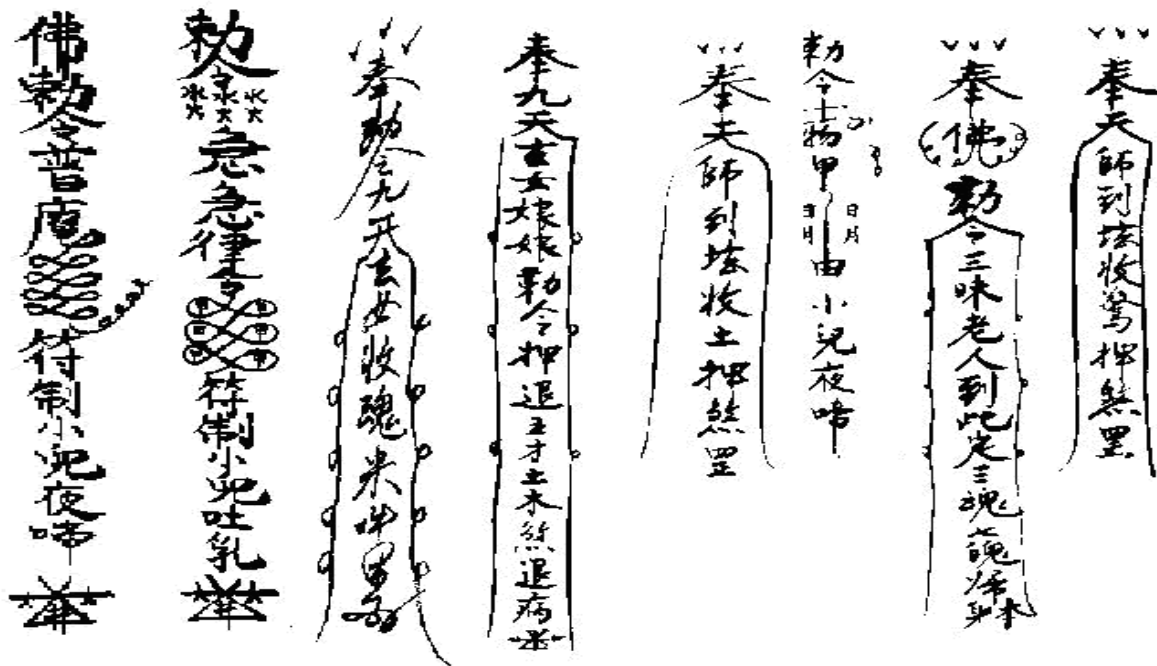 奉天師到壇收驚押煞罡
奉佛勅令三昧老人到此定三魂七魄歸本
勅令
甲
由小兒夜啼
奉天師到壇收土押煞罡
奉九天玄女娘娘勅令押退五方土木煞退病
奉勅令九天玄女收魂米
勅令
急急律令
符制小兒吐乳
佛勅令普唵
符制小兒夜啼